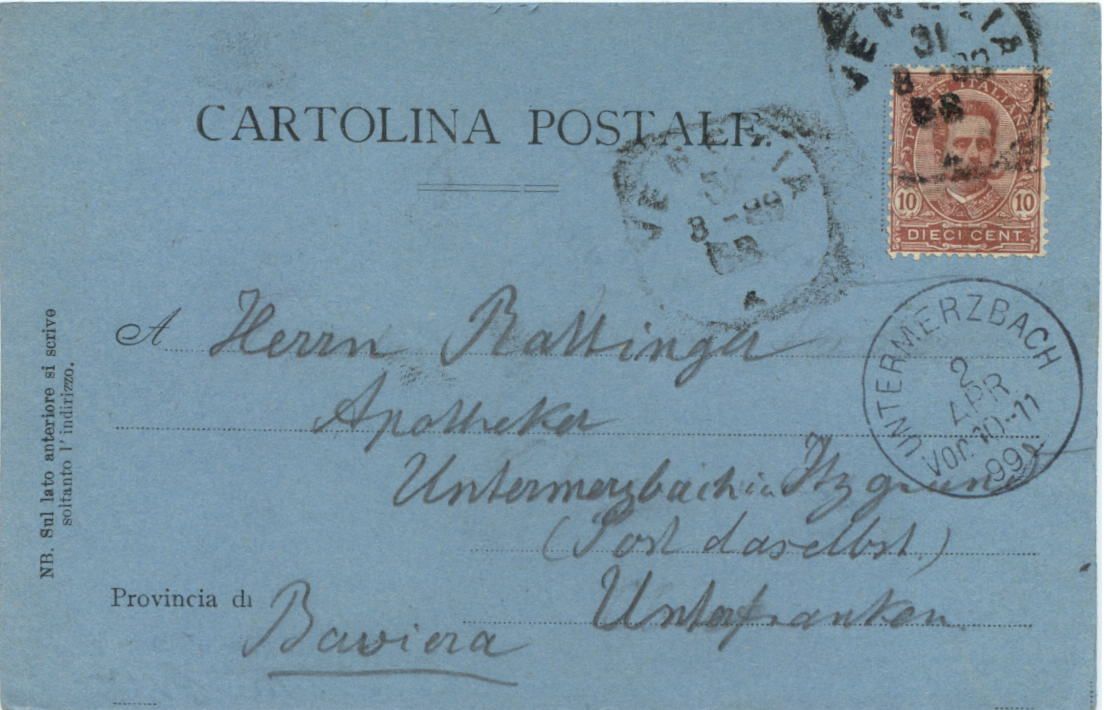 CARTOLINA POSTALE
VENEZIA
31
8 - 99
VENEZIA
31
8 - 99
POSTE ITALIANE
10 10
DIECI CENT.
UNTERMERZBACH
2
APR
Vor. 10-11
99
NB. Sul lato anteriore si scrive
soltanto l' indirizzo.
A Herrn Rattinger
Apotheker
Untermerzbach in Itzgrund
(Post daselbst.)
Provincia di Unterfranken
Baviera